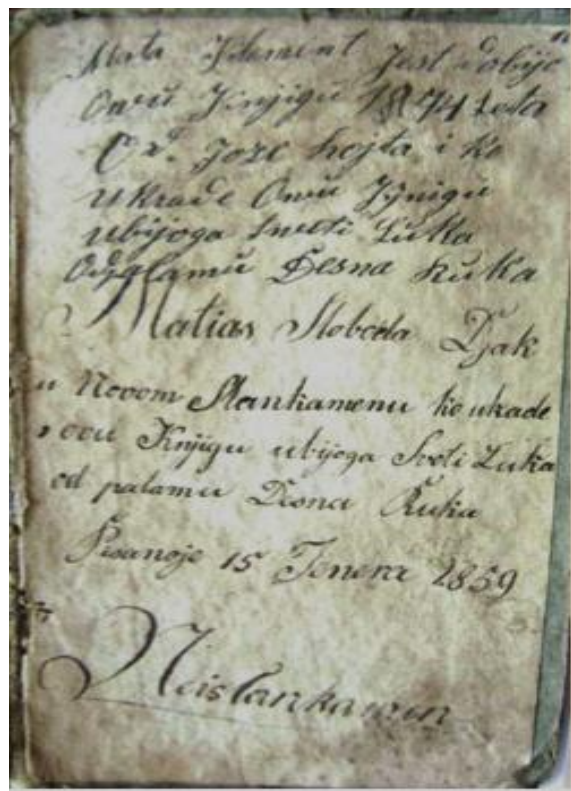 Mata Klement Jest dobijo
Ovvu Knjigu 1874 Leta
Od. Joze hojta i ko
ukrade Ovvu Jynigu
ubijoga Sweti Luka
Odpalamu Desna Ruka
Matias Sloboda Djak
u Novom Slankamenu ko ukade
ovu Knjigu ubijoga Sveti Luka
od palamu Desna Ruka
Pisanoje 15 Jenera 1859
Neislankamen